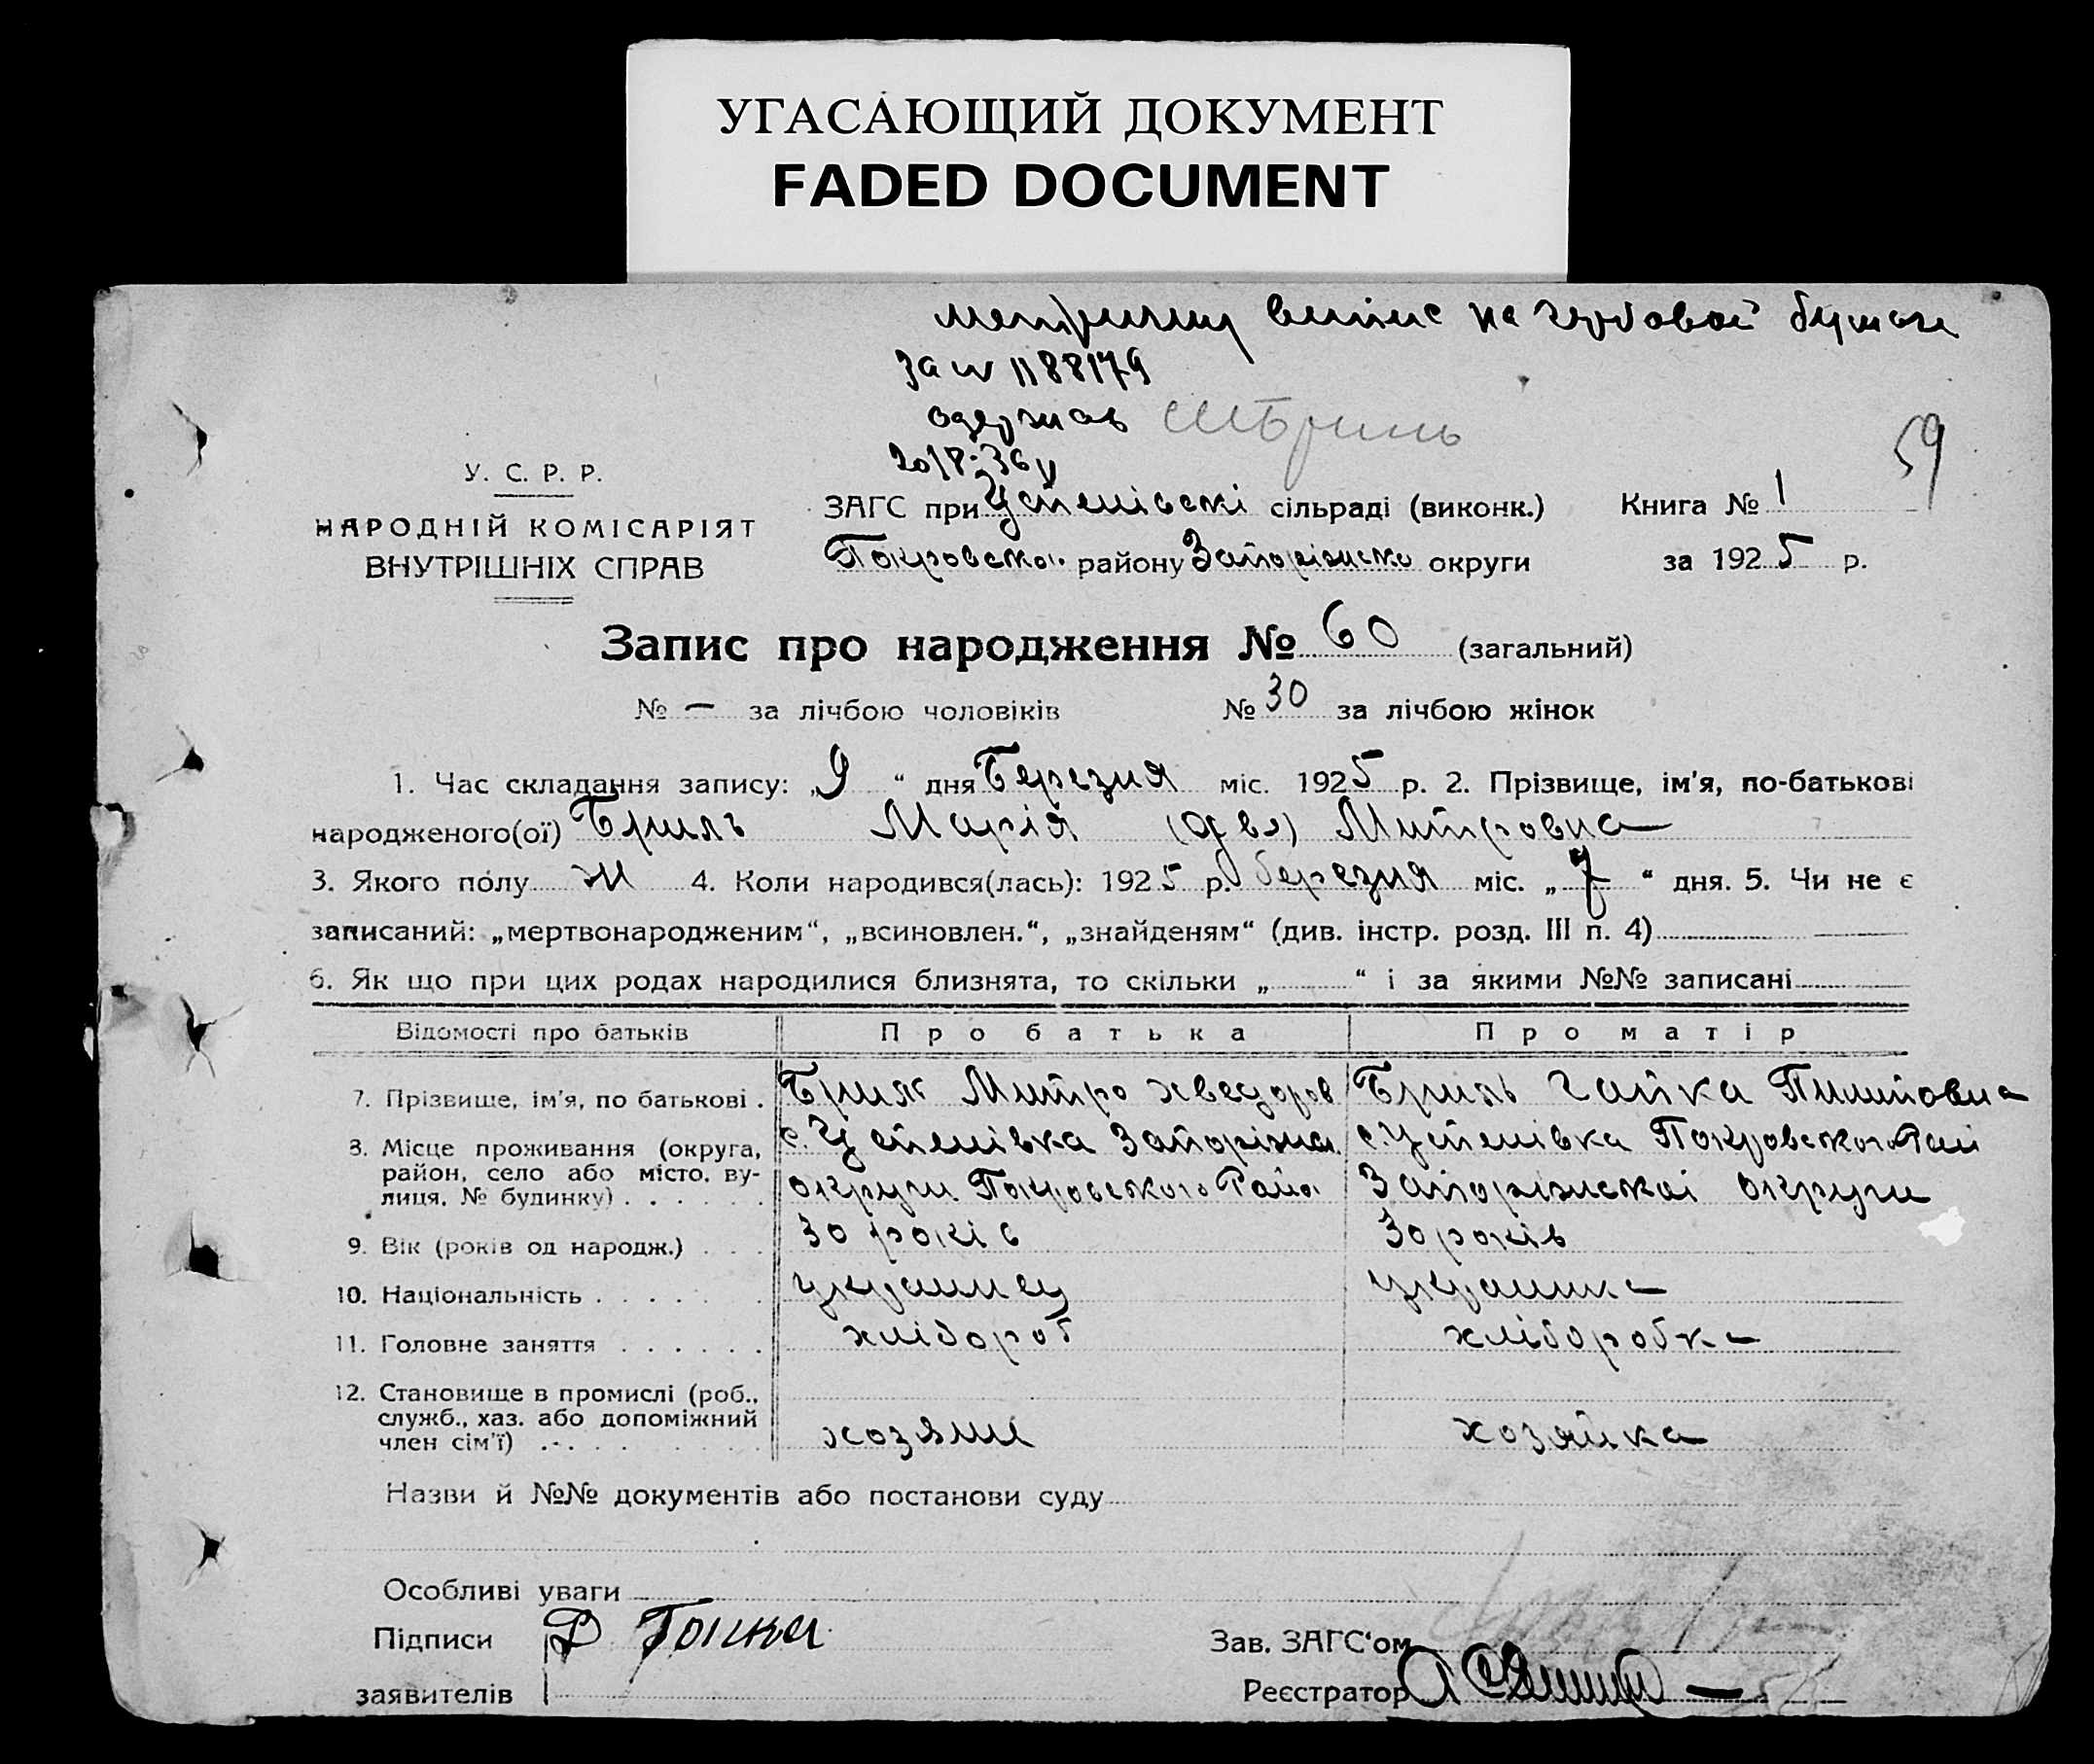 УГАСАЮЩИЙ ДОКУМЕНТ
FADED DOCUMENT
на гербовой бумаге
за № 1188179
одержав
20/8-36 р
59
У. С. Р. Р.
НАРОДНІЙ КОМІСАРІЯТ
ВНУТРІШНІХ СПРАВ
ЗАГС при Успенівскі сільраді (виконк.) Книга № 1
Покровсько. району Запоріжсько округи за 1925 р.
Запис про народження № 60 (загальний)
№ — за лічбою чоловіків № 30 за лічбою жінок
1. Час складання запису: „9“ дня Березня міс. 1925 р. 2. Прізвище, ім'я, по-батькові
народженого(ої) Бриль Марія Митровна
3. Якого полу ж 4. Коли народився(лась): 1925 р. березня міс. „7“ дня. 5. Чи не є
записаний: „мертвонародженим“, „всиновлен.“, „знайденям“ (див. інстр. розд. III п. 4)
6. Як що при цих родах народилися близнята, то скільки „ “ і за якими №№ записані
Відомості про батьків Про батька Про матір
7. Прізвище, ім'я, по батькові . Бриль Митро Хведоров Бриль Гапка Пилиповна
8. Місце проживання (округа, район, село або місто, вулиця, № будинку) . . . . . . с. Успенівка Запоріжа. округи Покровського Райо. с. Успенівка Покровського Рай Запоріжської округи
9. Вік (років од народж.) . . . 30 років 30 років
10. Національність . . . . . . украинец украинка
11. Головне заняття . . . . . . хлібороб хліборобка
12. Становище в промислі (роб., служб., хаз. або допоміжний член сім'ї) . . . хозяин хозяйка
Назви й №№ документів або постанови суду
Особливі уваги
Підписи Д
заявителів
Зав. ЗАГС'ом
Реєстратор